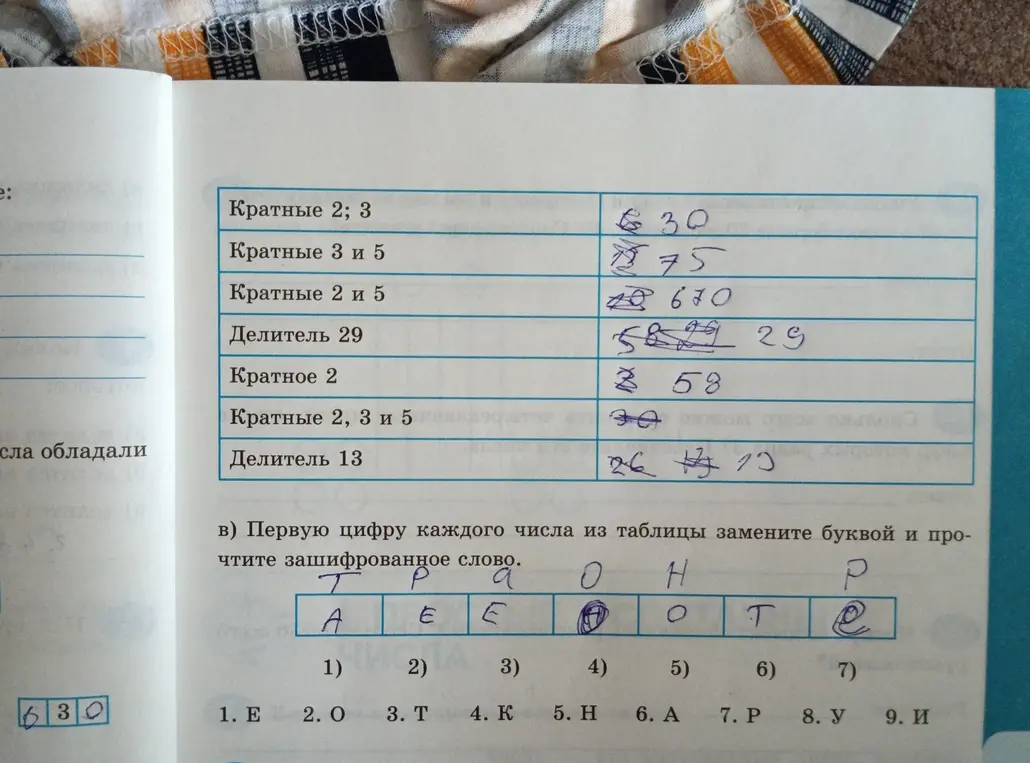 е:
сла обладали
6 3 0
Кратные 2; 3 6 30
Кратные 3 и 5 15 75
Кратные 2 и 5 10 670
Делитель 29 58 29 29
Кратное 2 2 58
Кратные 2, 3 и 5 30
Делитель 13 26 13 13
в) Первую цифру каждого числа из таблицы замените буквой и про-
чтите зашифрованное слово.
Т Р а О Н Р
А Е Е О Т
1) 2) 3) 4) 5) 6) 7)
1. Е 2. О 3. Т 4. К 5. Н 6. А 7. Р 8. У 9. И